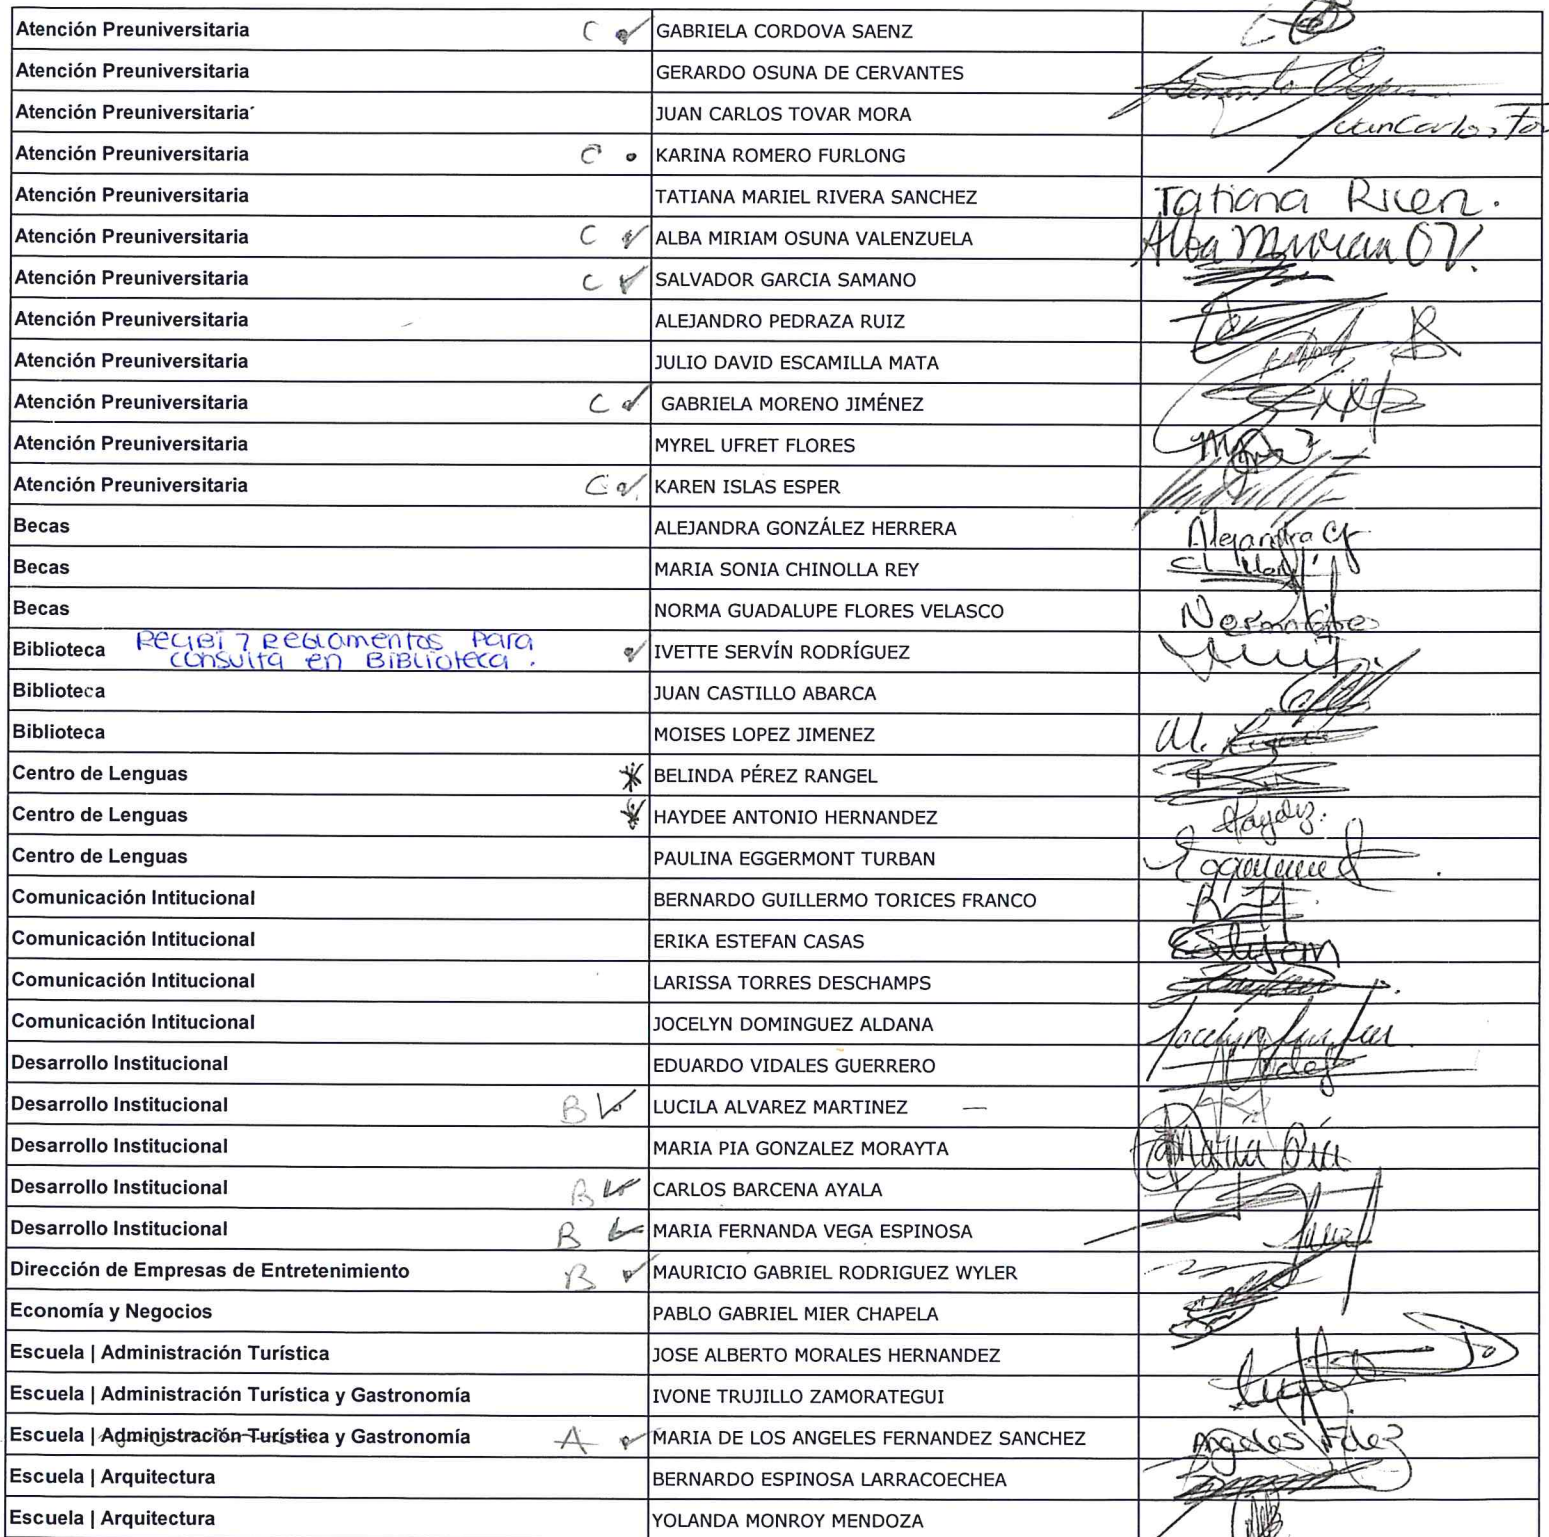 Atención Preuniversitaria C GABRIELA CORDOVA SAENZ
Atención Preuniversitaria GERARDO OSUNA DE CERVANTES
Atención Preuniversitaria JUAN CARLOS TOVAR MORA Juan Carlos Tov
Atención Preuniversitaria C KARINA ROMERO FURLONG
Atención Preuniversitaria TATIANA MARIEL RIVERA SANCHEZ Tatiana
Atención Preuniversitaria C ALBA MIRIAM OSUNA VALENZUELA Alba Miriam OV.
Atención Preuniversitaria C SALVADOR GARCIA SAMANO
Atención Preuniversitaria ALEJANDRO PEDRAZA RUIZ
Atención Preuniversitaria JULIO DAVID ESCAMILLA MATA
Atención Preuniversitaria C GABRIELA MORENO JIMÉNEZ
Atención Preuniversitaria MYREL UFRET FLORES
Atención Preuniversitaria C KAREN ISLAS ESPER
Becas ALEJANDRA GONZÁLEZ HERRERA Alejandra G
Becas MARIA SONIA CHINOLLA REY
Becas NORMA GUADALUPE FLORES VELASCO
Biblioteca Recibí 7 Reglamentos para IVETTE SERVÍN RODRÍGUEZ
consulta en Biblioteca.
Biblioteca JUAN CASTILLO ABARCA
Biblioteca MOISES LOPEZ JIMENEZ
Centro de Lenguas BELINDA PÉREZ RANGEL
Centro de Lenguas HAYDEE ANTONIO HERNANDEZ
Centro de Lenguas PAULINA EGGERMONT TURBAN
Comunicación Intitucional BERNARDO GUILLERMO TORICES FRANCO
Comunicación Intitucional ERIKA ESTEFAN CASAS Estefan
Comunicación Intitucional LARISSA TORRES DESCHAMPS
Comunicación Intitucional JOCELYN DOMINGUEZ ALDANA Jocelyn
Desarrollo Institucional EDUARDO VIDALES GUERRERO
Desarrollo Institucional B LUCILA ALVAREZ MARTINEZ —
Desarrollo Institucional MARIA PIA GONZALEZ MORAYTA Maria Pía
Desarrollo Institucional B CARLOS BARCENA AYALA
Desarrollo Institucional B MARIA FERNANDA VEGA ESPINOSA
Dirección de Empresas de Entretenimiento B MAURICIO GABRIEL RODRIGUEZ WYLER
Economía y Negocios PABLO GABRIEL MIER CHAPELA
Escuela | Administración Turística JOSE ALBERTO MORALES HERNANDEZ
Escuela | Administración Turística y Gastronomía IVONE TRUJILLO ZAMORATEGUI
Escuela | Administración Turística y Gastronomía A MARIA DE LOS ANGELES FERNANDEZ SANCHEZ Angeles Fdez
Escuela | Arquitectura BERNARDO ESPINOSA LARRACOECHEA
Escuela | Arquitectura YOLANDA MONROY MENDOZA